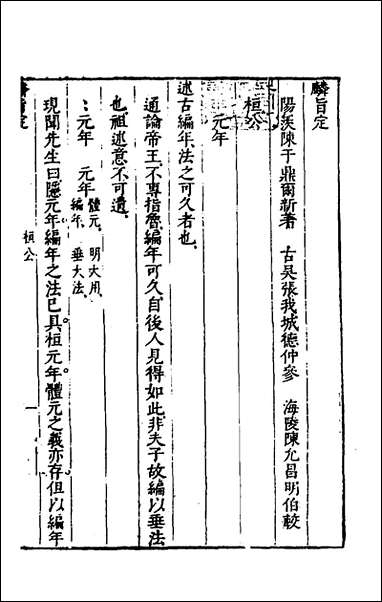 麟旨定
陽羨陳于鼎爾新著　古吳張我城德仲參　海陵陳允昌明伯較
桓公
元年
述古編年法之可久者也
通論帝王不專指魯編年可久自後人見得如此非夫子故編以垂法
也祖述意不可遺
：元年　元年體元　明大用
編年　垂大法
現聞先生曰隱元年編年之法已具桓元年體元之義亦存但以編年
桓公
一